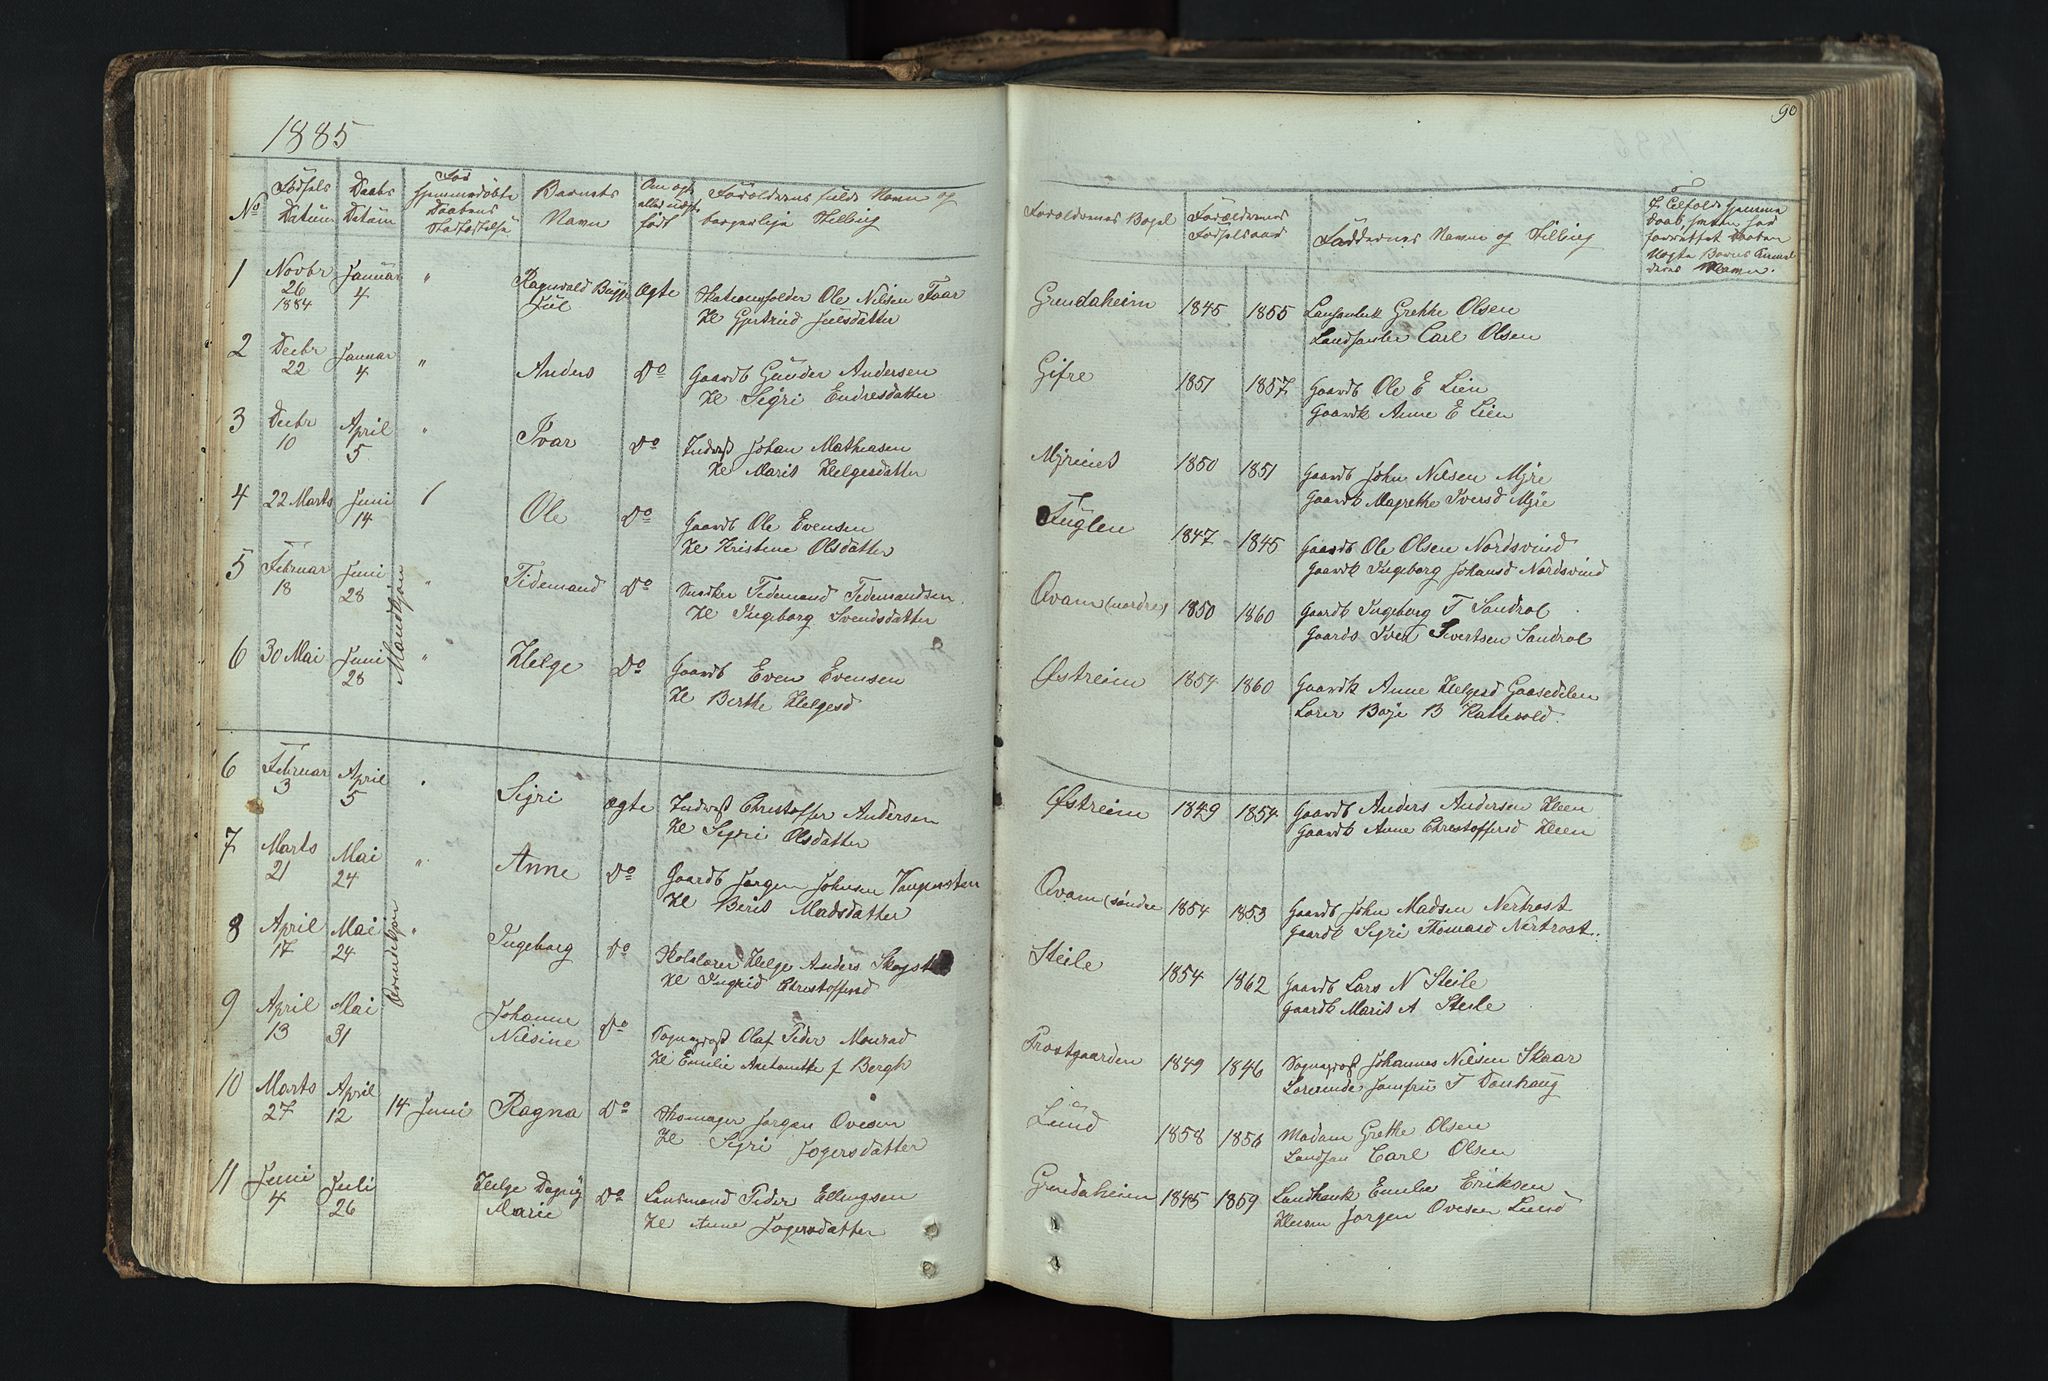 1885
90
No
Fødsels
Datum
Daabs
Datum
Sted
Hjemmedøbte
Daabens
Stadfæstelse
Barnets
Navn
Om ægte
eller uægte
født
Forældrenes fulde Navn og
borgerlige Stilling
Forældrenes Bopæl
Forældrenes
Fødselsaar
Faddernes Navn og Stilling
1
Novbr
26
1884
Januar
4
"
Ragnvald
Jul
Ægte
Ole Nilsen Faar
H Gjertrud Julsdatter
Grindaheim
1845
1855
Grethe Olsen
Carl Olsen
2
Decbr
22
Januar
4
"
Anders
Do
Gaardb Gunder Andersen
H Sigri Endresdatter
Gifre
1851
1857
Gaardb Ole E Lien
Gaardk Anne E Lien
3
Decbr
10
April
5
"
Ivar
Do
Inderst Johan Mathiasen
H Marit Helgesdatter
1850
1851
Gaardb John Nilsen Myre
Gaardk Magrethe Iversd Myre
4
22 Marts
Juni
14
Ole
Do
Gaardb Ole Evensen
H Kristine Olsdatter
Fuglen
1847
1845
Gaardb Ole Olsen Nordsvind
Gaardk Ingeborg Johansd Nordsvind
5
Februar
18
Juni
28
"
Tidemand
Do
Snedker Tidemand Tidemandsen
H Ingeborg Svendsdatter
Qvam (nordre)
1850
1860
Gaardb Ingeborg T Sandrol
Gaards Iver Sivertsen Sandrol
6
30 Mai
Juni
28
"
Helge
Do
Gaardb Even Evensen
H Berthe Helgesd
Østreim
1854
1860
Gaardk Anne Helgesd Gaasedelen
Lærer Boje B Kattevold
Mandkjøn
6
Februar
3
April
5
Sigri
ægte
Inderst Christoffer Andersen
H Sigri Olsdatter
Østreim
1849
1854
Gaardb Anders Andersen Heen
Gaardk Anne Christoffersd Heen
7
Marts
21
Mai
24
"
Anne
Do
Gaardb Jørgen Johnsen
H Berit Madsdatter
Qvam (søndre
1854
1853
Gaardb John Madsen Nertrost
Gaardk Sigri Thomasd Nertrost
8
April
17
Mai
24
"
Ingeborg
Do
Skolelærer Helge Anders
H Ingrid Christoffersd
Steile
1854
1862
Gaardb Lars N Steile
Gaardk Marit A Steile
Qvindekjøn
9
April
13
Mai
31
Johanne
Nilsine
Do
Sogneprest Olaf Peder Monrad
H Emilie Antonette f Bergh
Prostgaarden
1849
1846
Sogneprest Johannes Nilsen Skaar
Lærerinde Jomfru T Donhaug
10
Marts
27
April
12
14 Juni
Ragna
Do
Skomager Jørgen Ovesen
H Sigri Jogersdatter
Lund
1858
1856
Madam Grethe Olsen
Carl Olsen
11
Juni
4
Juli
26
Helge Dagny
Marie
Do
Lensmand Peder Ellingsen
H Anne Jogersdatter
Grindaheim
1845
1859
Emilie Eriksen
Jørgen Ovesen Lund